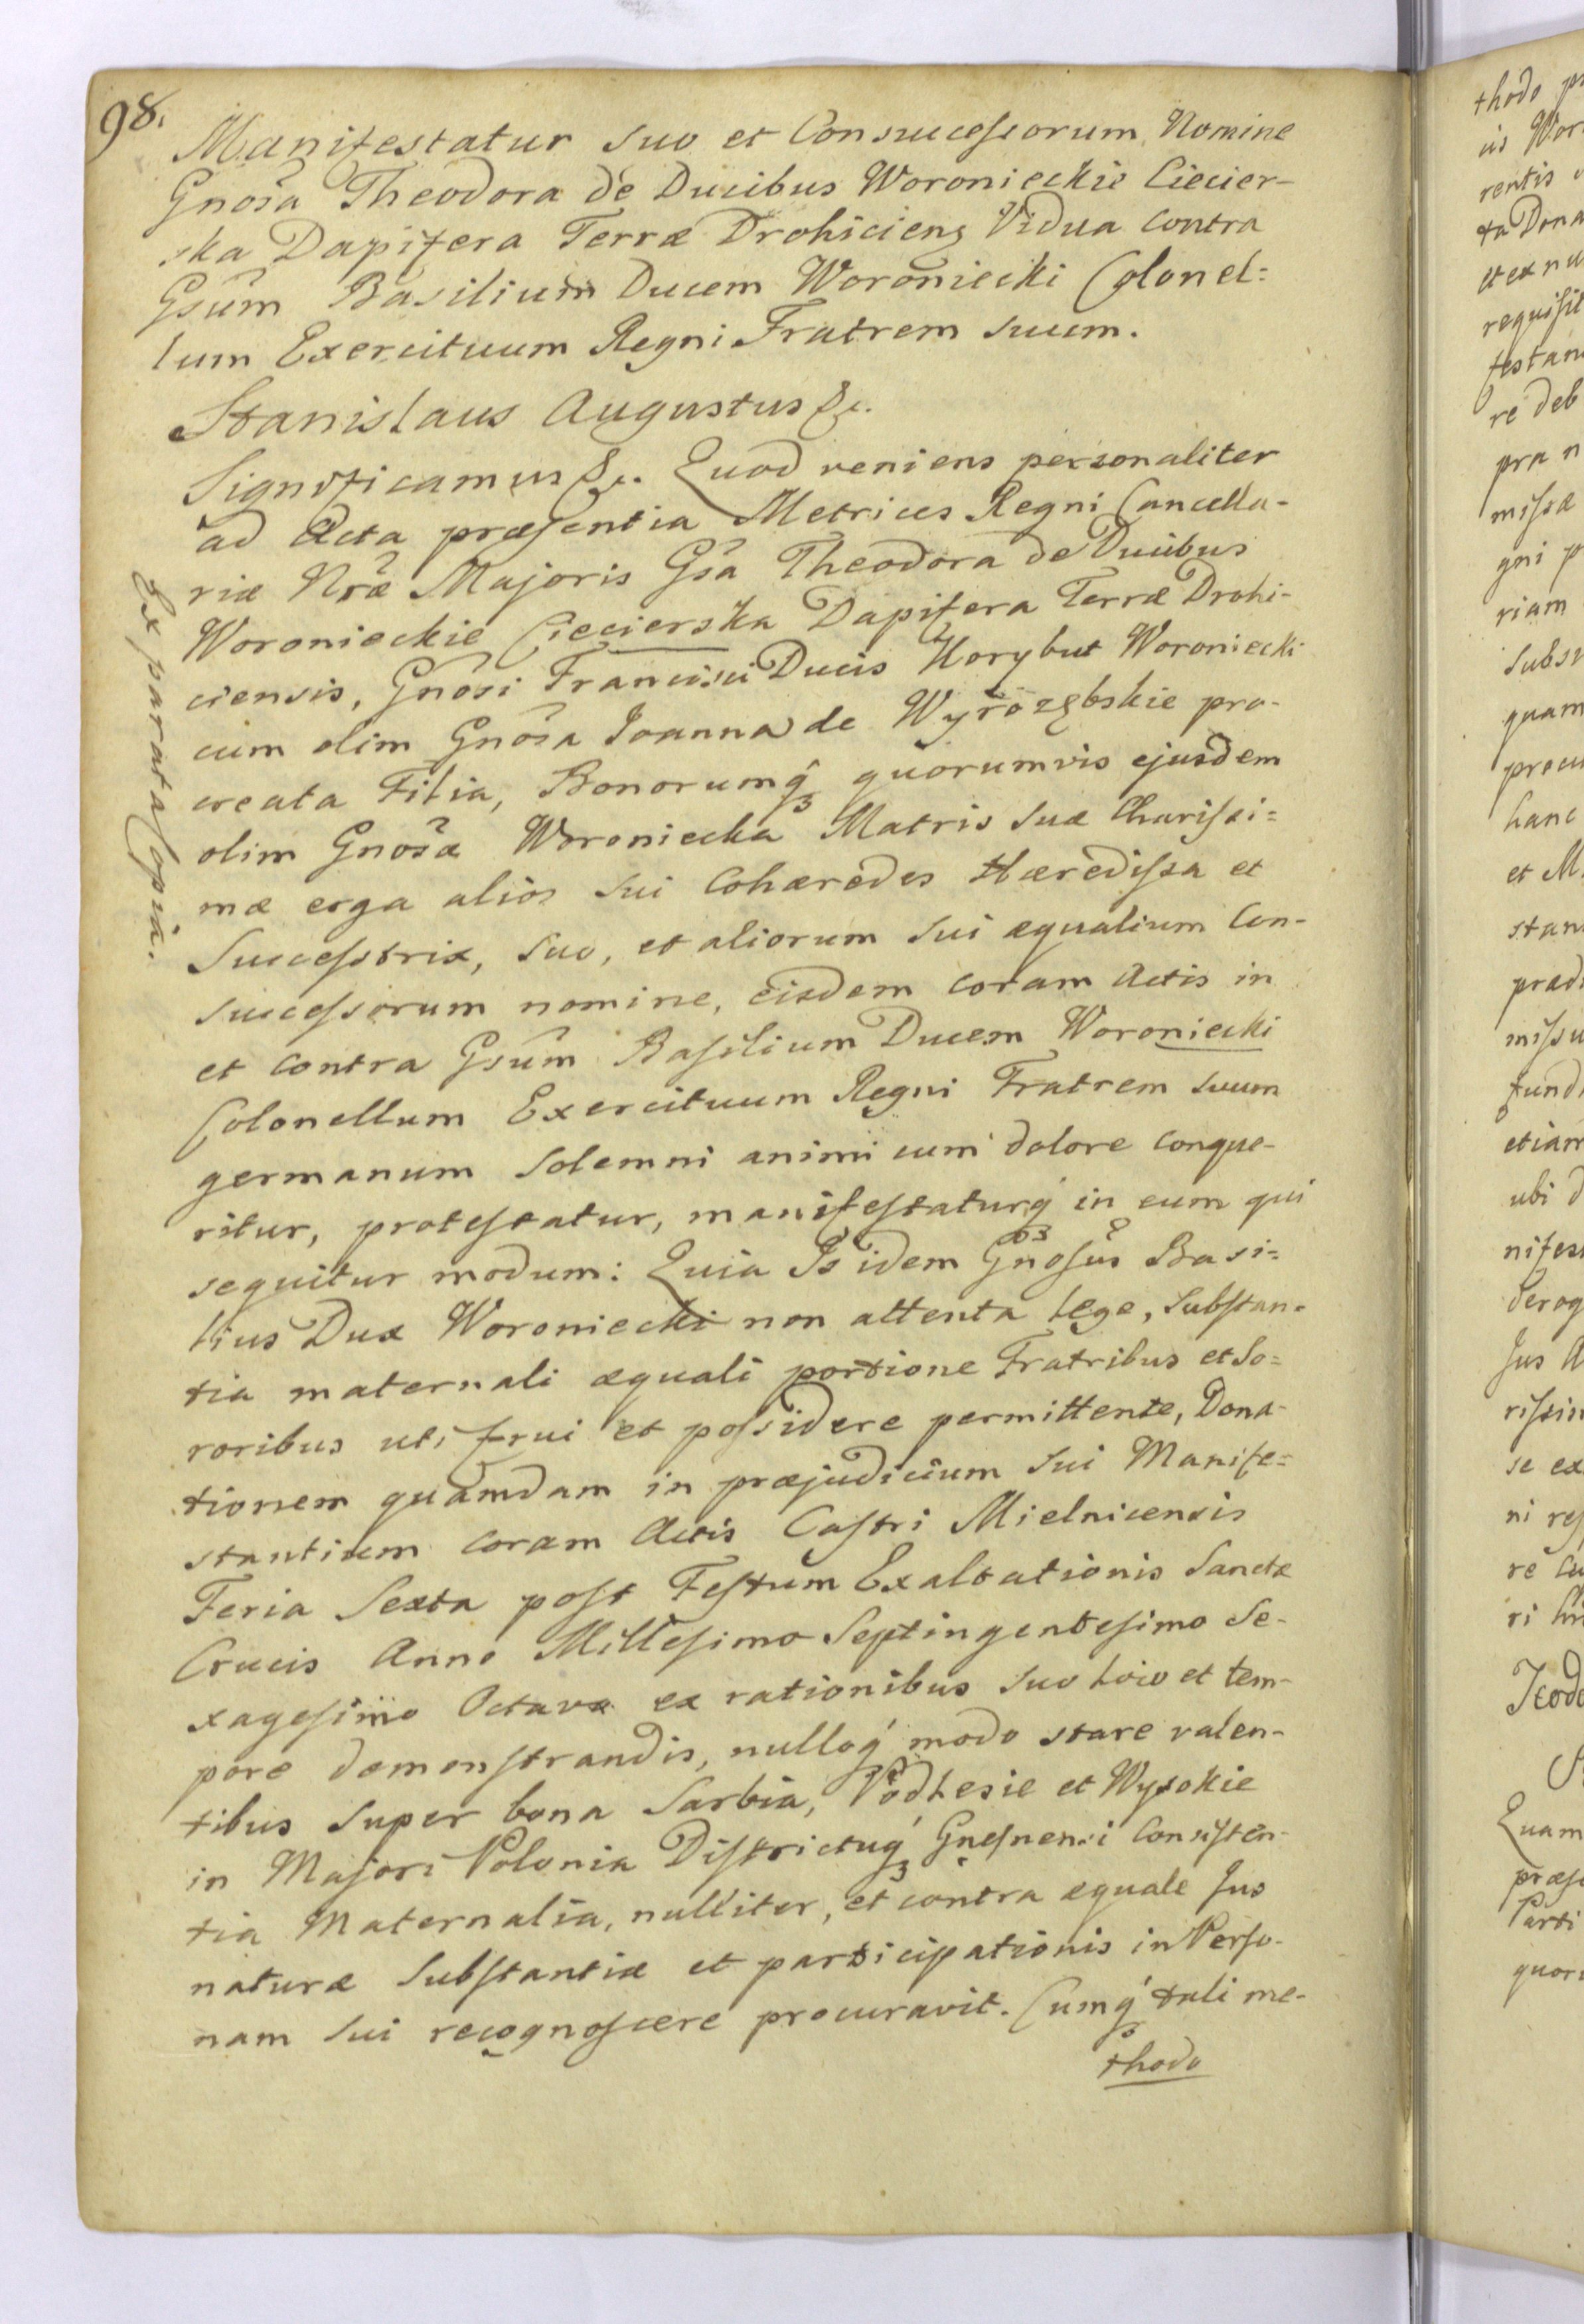 98.
Manifestatur suo et Consuccessorum Nomine
Gnosa Theodora de Ducibus Woronieckie Ciecier-
ska Dapifera Terræ Drohiciens Vidua contra
Gsum Basilium Ducem Woroniecki Colonel=
lum Exercituum Regni Fratrem suum.
Stanislaus Augustus &c.
Significamus &c. Quod veniens personaliter
ad Acta præsentia Metrices Regni Cancella-
riæ Nræ Majoris Gsa Theodora de Ducibus
Woronieckie Ciecierska Dapifera Terræ Drohi-
ciensis, Gnosi Francisci Ducis Korybut Woroniecki
cum olim Gnosa Joanna de Wyrozębskie pro-
creata Filia, Bonorumq quorumvis ejusdem
olim Gnosæ Woroniecka Matris suæ Charissi=
mæ erga alios sui Cohæredes Hæredissa et
Successtrix, suo, et aliorum sui æqualium Con-
successorum nomine, eisdem coram Actis in
et contra Gsum Basilium Ducem Woroniecki
Colonellum Exercituum Regni Fratrem suum
germanum solemni animi cum dolore conque-
ritur, protestatur, manifestaturq in eum qui
sequitur modum: Quia Is idem Gnosus Basi=
lius Dux Woroniecki non attenta lege, substan-
tia maternali æquali portione Fratribus et So=
roribus uti frui et possidere permittente, Dona-
tionem quamdam in præjudicium sui Manife=
stantium coram Actis Castri Mielnicensis
Feria Sexta post Festum Exaltationis Sanctæ
Crucis Anno Millesimo Septingentesimo Se-
xagesimo Octavo ex rationibus suo loco et tem-
pore demonstrandis, nulloq modo stare valen-
tibus super bona Sarbia, Podlesie et Wysokie
in Majori Polonia Districtuq Gnesnensi consisten-
tia Maternalia, nulliter, et contra æquale Jus
naturæ substantiæ et participationis in Perso-
nam sui recognoscere procuravit. Cumq tali me-
thodo
Ex parata Copia.
thodo